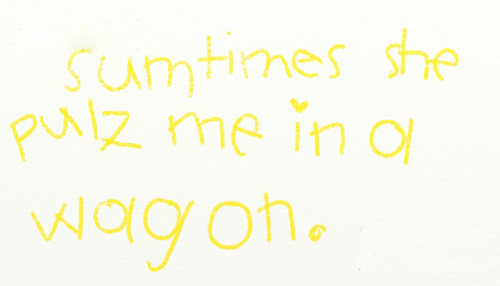 sumtimes she
pulz me in a
wagon.